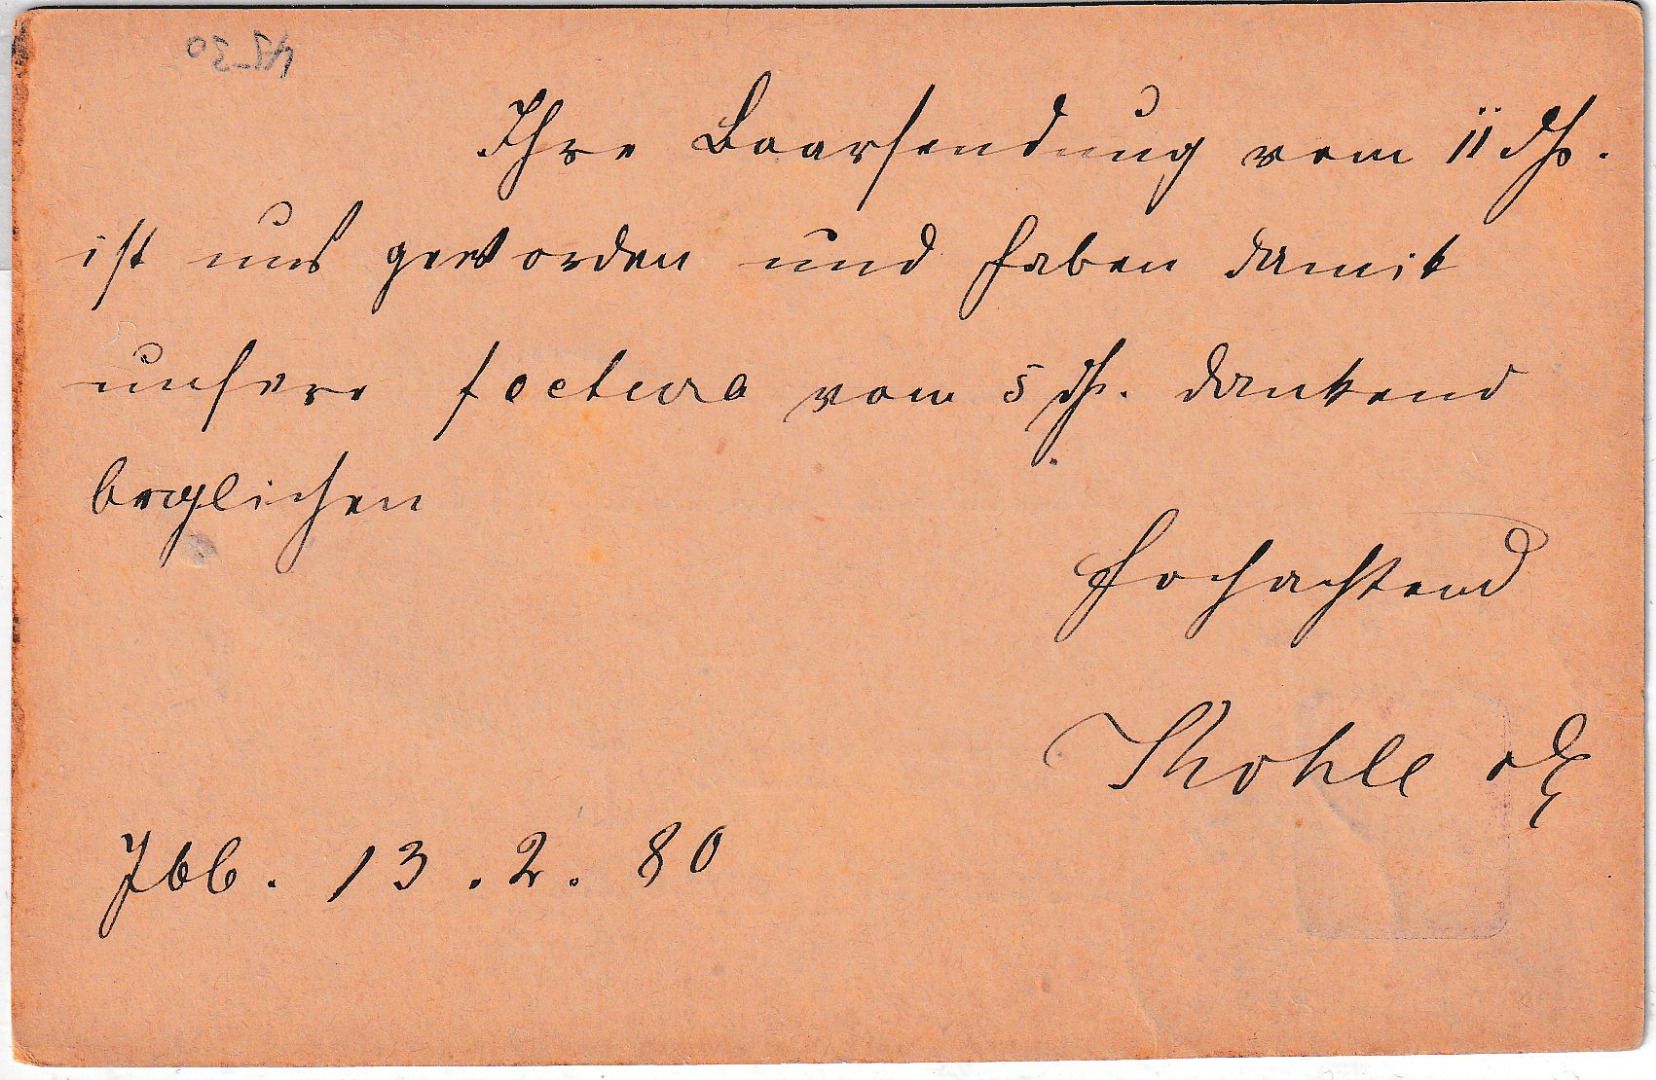 Ihre Baarsendung vom 11 ds.
ist uns geworden und haben damit
unsere factura vom 5 ds. dankend
beglichen
Hochachtend
Jbb. 13.2.80